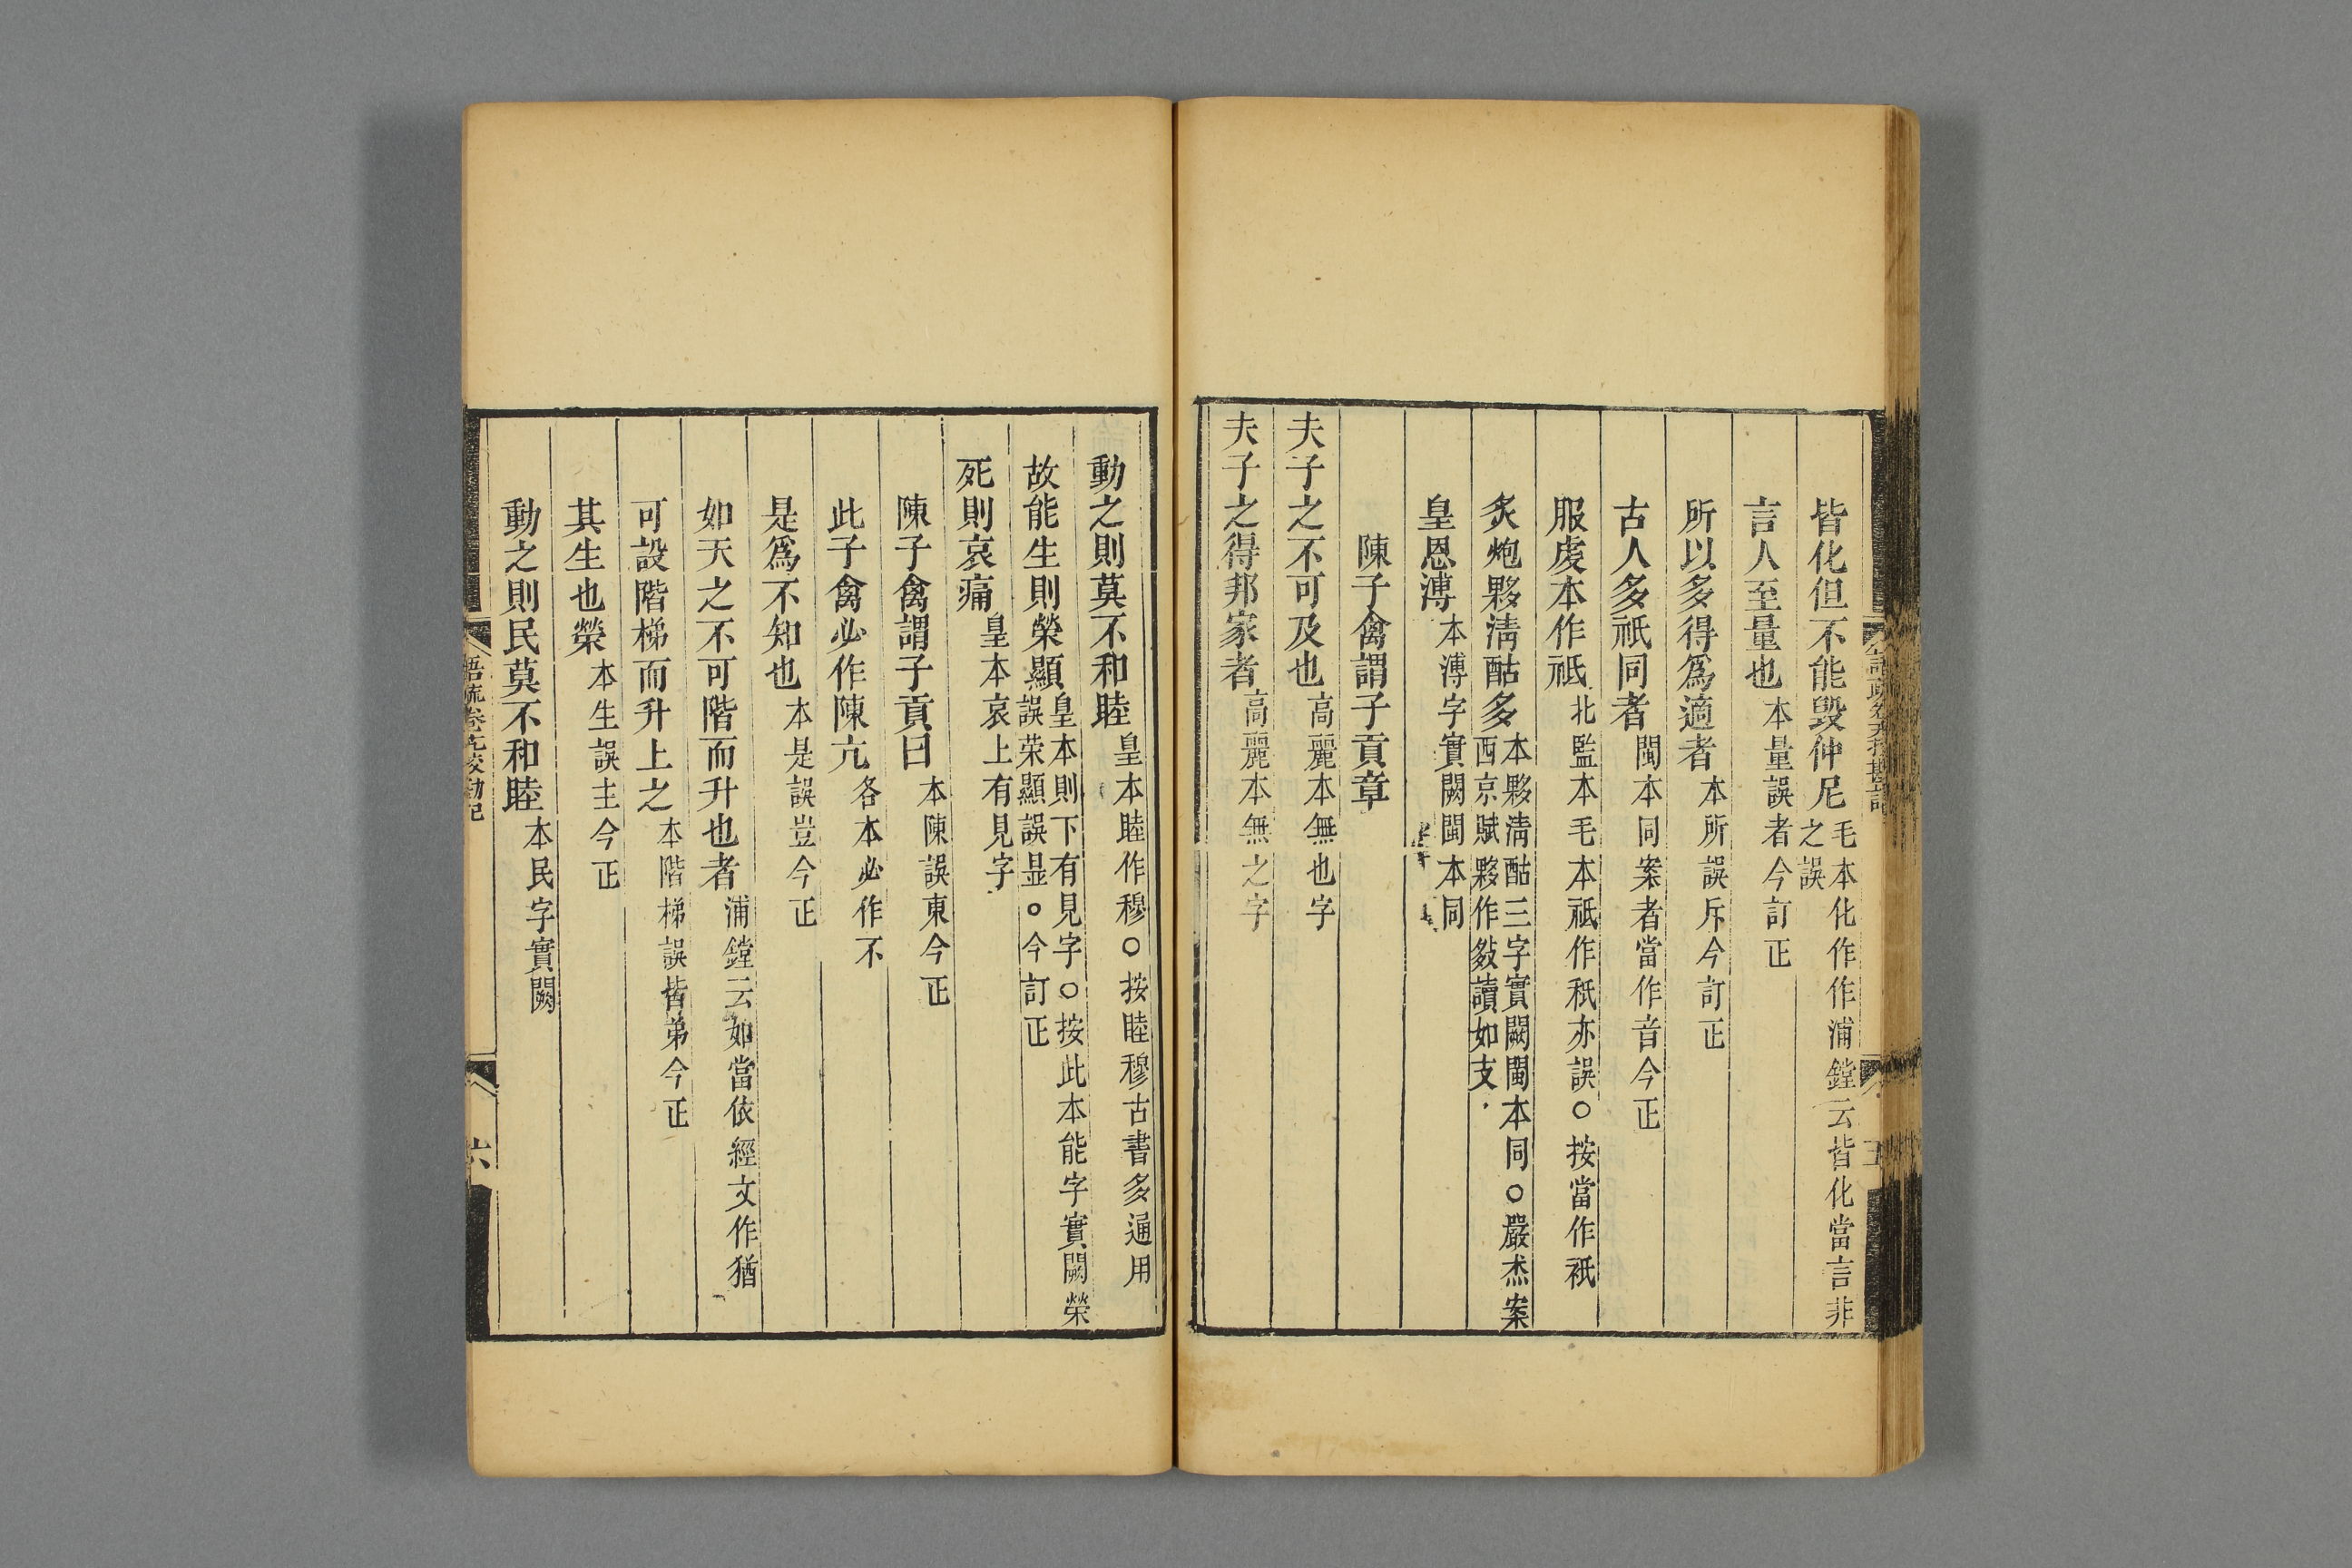 皆化但不能毀仲尼毛本化作作浦鏜云皆化當言非之誤
言人至量也本量誤者今訂正
所以多得爲適者本所誤斥今訂正
古人多祇同者閩本同案者當作音今正
服虔本作祇北監本毛本祇作秖亦誤○按當作祇
炙炮夥淸酤多本夥淸酤三字實闕閩本同○嚴杰案西京賦夥作㩼讀如支
皇恩溥本溥字實闕閩本同
陳子禽謂子貢章
夫子之不可及也高麗本無也字
夫子之得邦家者高麗本無之字
動之則莫不和睦皇本睦作穆○按睦穆古書多通用
故能生則榮顯皇本則下有見字○按此本能字實闕榮誤荣顯誤显○今訂正
死則哀痛皇本哀上有見字
陳子禽謂子貢曰本陳誤東今正
此子禽必作陳亢各本必作不
是爲不知也本是誤豈今正
如天之不可階而升也者浦鏜云如當依經文作猶
可設階梯而升上之本階梯誤揩弟今正
其生也榮本生誤主今正
動之則民莫不和睦本民字實闕
語疏卷十九校勘記
六